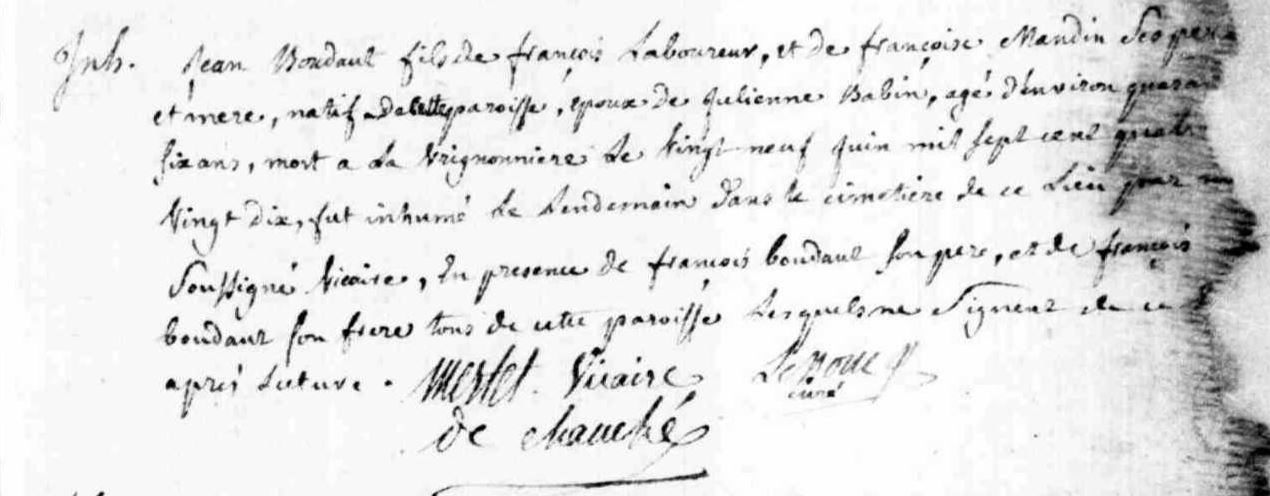 Inh. Jean Boudaut fils de françois Laboureur, et de françoise Mandin Ses pere
et mere, natif de cette paroisse, epoux de Julienne Babin, agé d'environ quara
six ans, mort a La Vrignonniere Le Vingt neuf Juin mil sept cent quatr
Vingt dix, fut inhumé Le Lendemain dans le cimetiere de ce Lieu par
Soussigné Vicaire, En presence de françois boudaut son pere, et de françois
boudaut son frere tous de cette paroisse Lesquels ne Signent de ce
aprés Lecture. Merlet Vicaire
de chauché
curé